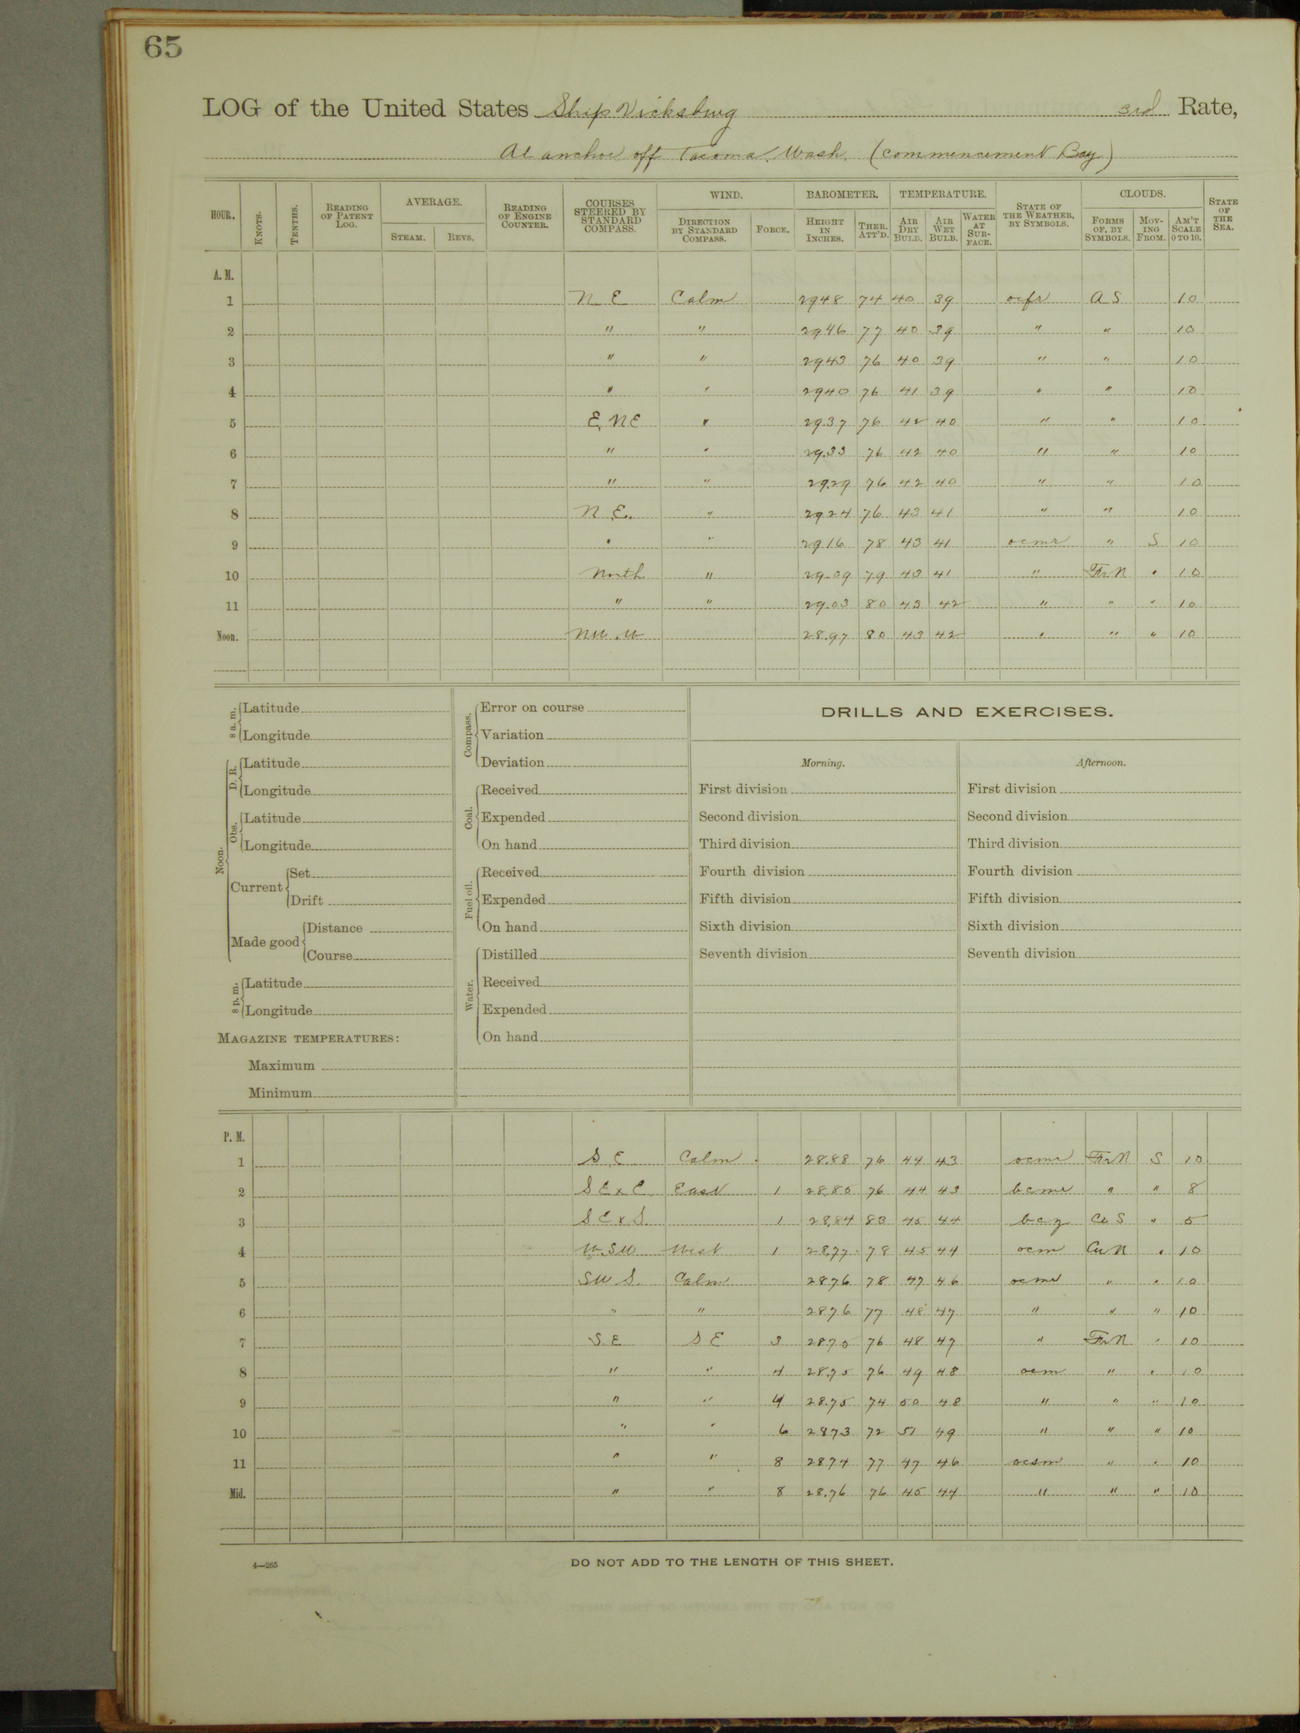 65
LOG of the United States Ship Vicksburg 3rd Rate,
At anchor off Tacoma, Wash. (Commencement Bay)
HOUR. KNOTS. TENTHS. READING OF PATENT LOG. AVERAGE. STEAM. REVS. READING OF ENGINE COUNTER. COURSES STEERED BY STANDARD COMPASS. WIND. DIRECTION BY STANDARD COMPASS. FORCE. BAROMETER. HEIGHT IN INCHES. THER. ATT'D. TEMPERATURE. AIR DRY BULB. AIR WET BULB. WATER AT SURFACE. STATE OF THE WEATHER, BY SYMBOLS. CLOUDS. FORMS OF, BY SYMBOLS. MOVING FROM. AM'T SCALE 0 TO 10. STATE OF THE SEA.
A. M.
1 N E Calm 2948 74 40 39 ocfr A S 10
2 " " 2946 77 40 39 " " 10
3 " " 2943 76 40 39 " " 10
4 " " 2940 76 41 39 " " 10
5 E, NE " 29.37 76 42 40 " " 10
6 " " 29.33 76 42 40 " " 10
7 " " 29.29 76 42 40 " " 10
8 N E. " 2924 76 43 41 " " 10
9 " " 2916 78 43 41 ocmr " S 10
10 North " 29.09 79 43 41 " Fr N " 10
11 " " 29.03 80 43 42 " " " 10
Noon. NW. W 28.97 80 43 42 " " " 10
8 a. m. Latitude
Longitude
Noon. D. R. Latitude
Longitude
Obs. Latitude
Longitude
Current Set
Drift
Made good Distance
Course
8 p. m. Latitude
Longitude
MAGAZINE TEMPERATURES:
Maximum
Minimum
Compass. Error on course
Variation
Deviation
Coal. Received
Expended
On hand
Fuel oil. Received
Expended
On hand
Water. Distilled
Received
Expended
On hand
DRILLS AND EXERCISES.
Morning. Afternoon.
First division First division
Second division Second division
Third division Third division
Fourth division Fourth division
Fifth division Fifth division
Sixth division Sixth division
Seventh division Seventh division
P. M.
1 S E Calm 28.88 76 44 43 ocmr Fr N S 10
2 SE x E East 1 28.85 76 44 43 bcmr " " 8
3 SE x S. 1 28.84 83 45 44 bcz Cu S " 5
4 W. SW West 1 28.77 78 45 44 ocm Cu N " 10
5 SW S. Calm 28.76 78 47 46 ocmr " " 10
6 " " 28.76 77 48 47 " " " 10
7 S.E S E 3 28.75 76 48 47 " Fr N " 10
8 " " 4 28.75 76 49 48 ocm " " 10
9 " " 4 28.75 74 50 48 " " " 10
10 " " 6 2873 72 51 49 " " " 10
11 " " 8 2874 77 47 46 ocsm " " 10
Mid. " " 8 28.76 76 45 44 " " " 10
4—265
DO NOT ADD TO THE LENGTH OF THIS SHEET.